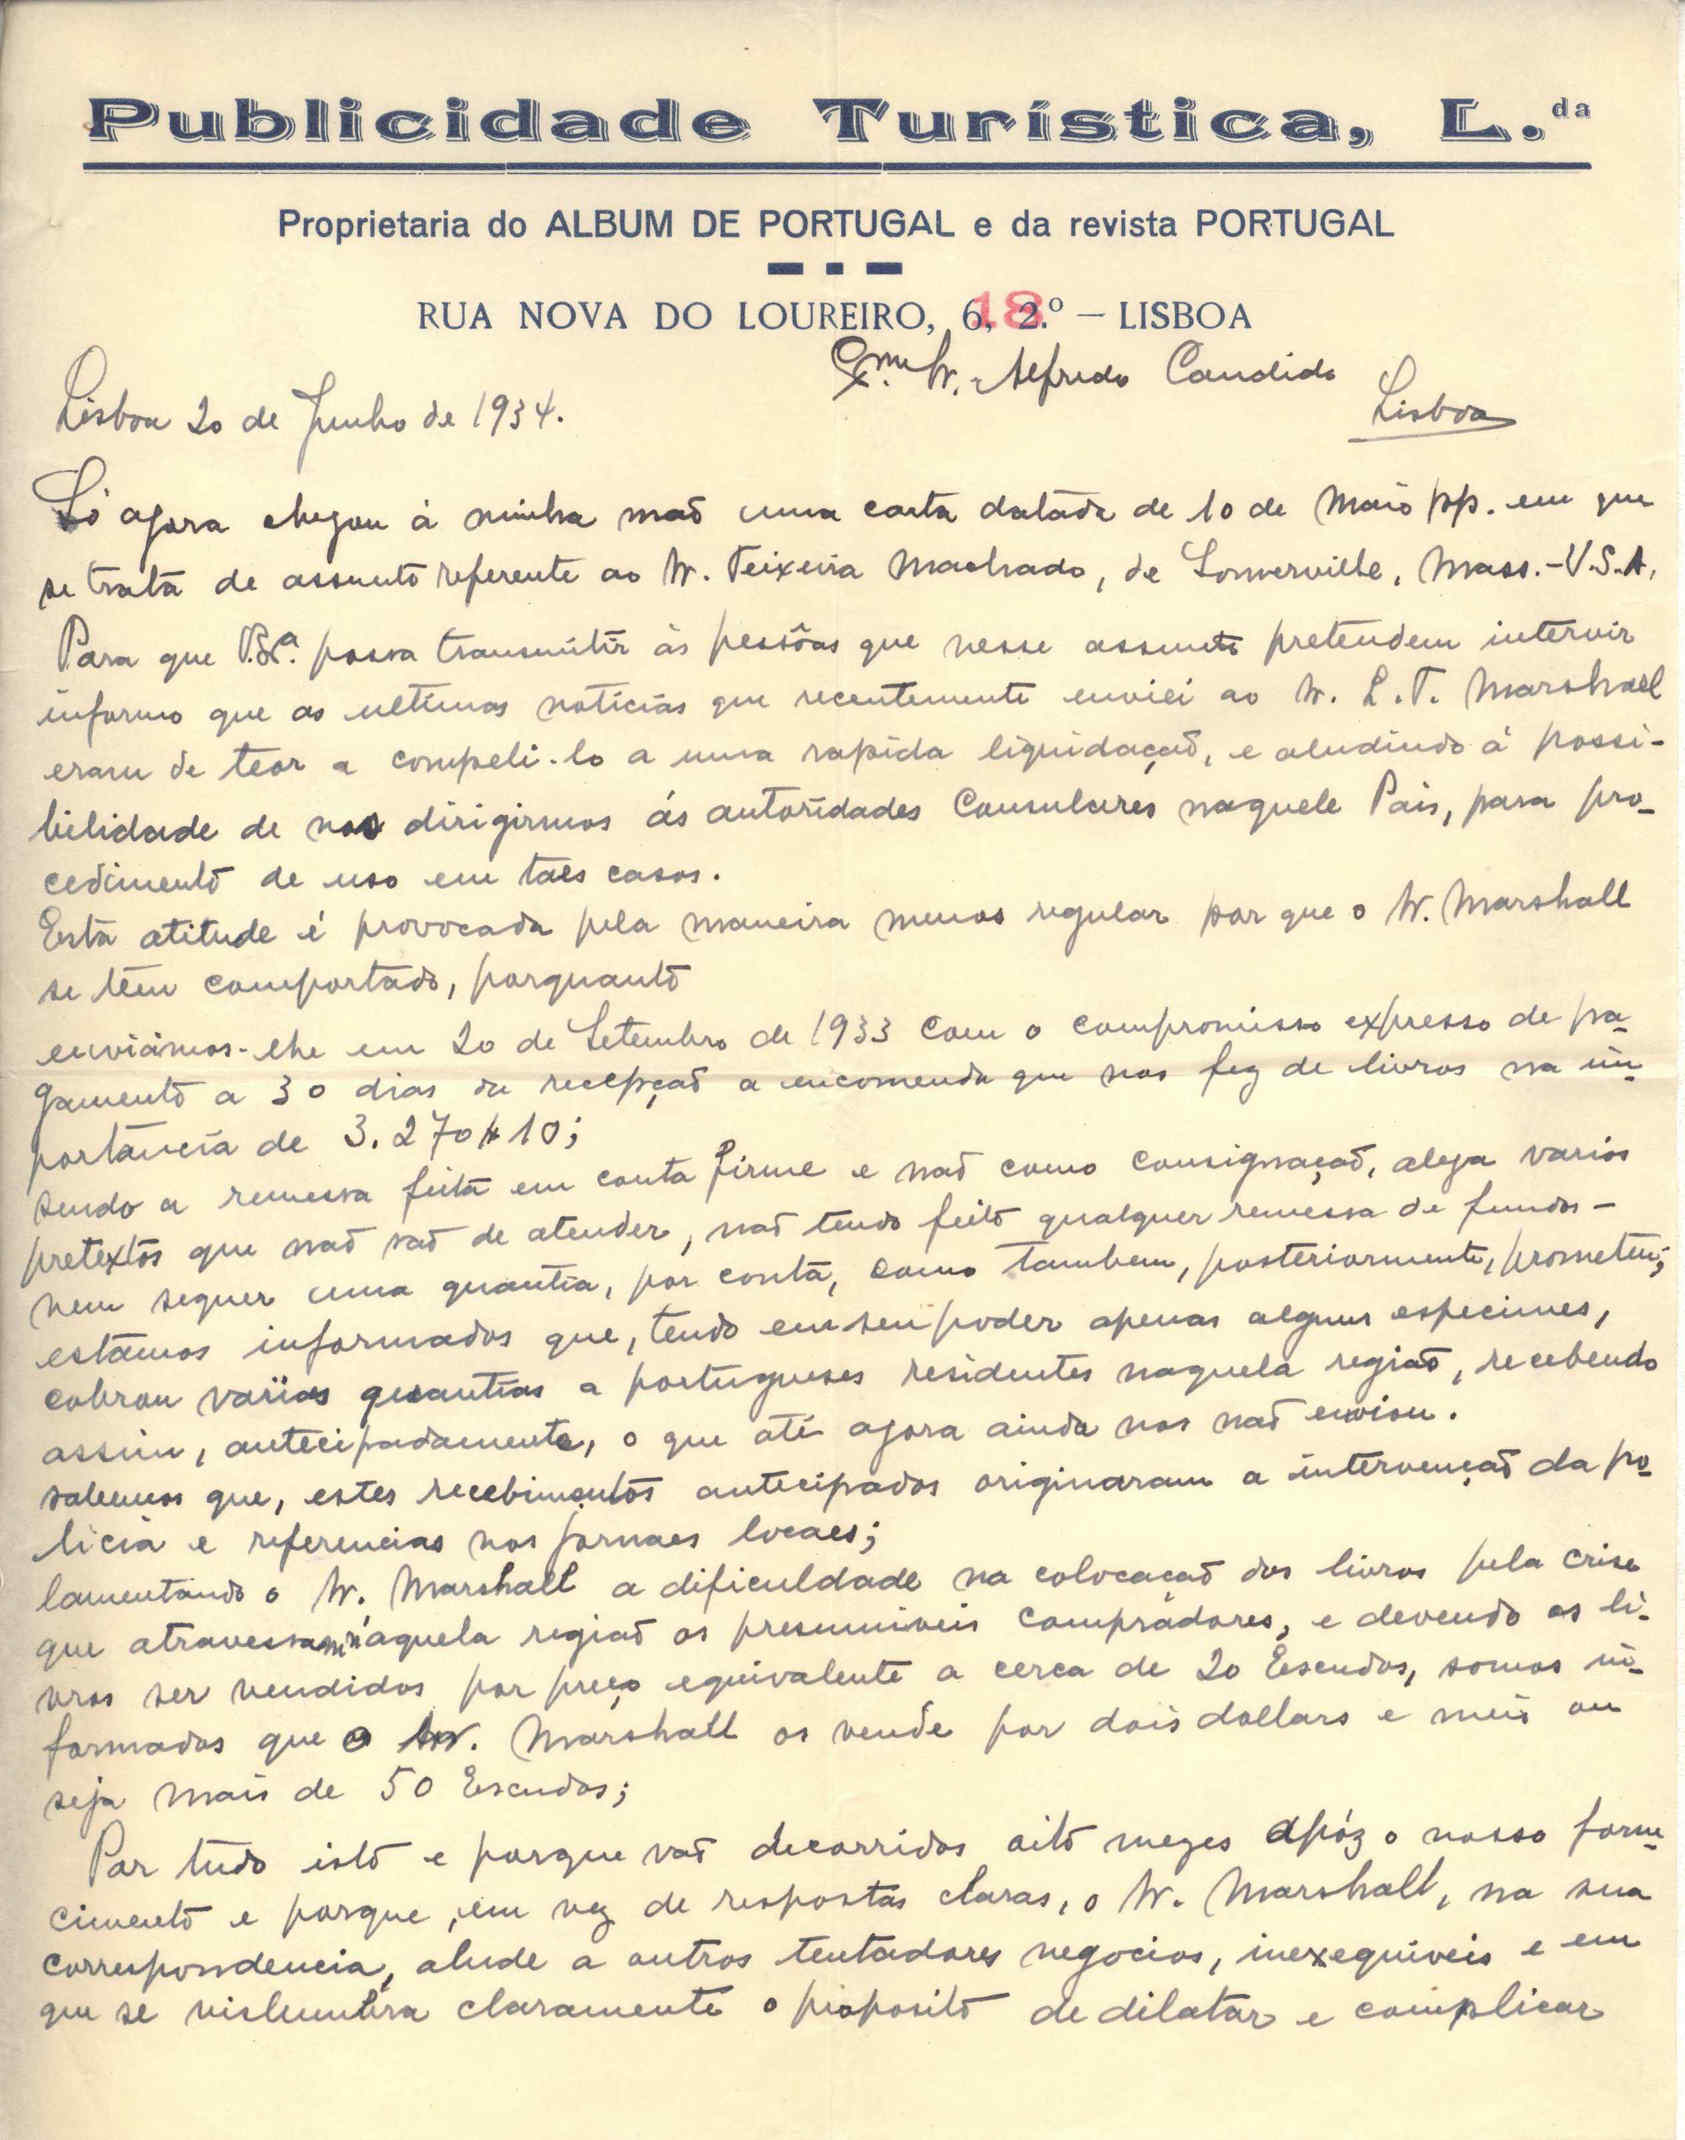 Publicidade Turística, L.da
Proprietaria do ALBUM DE PORTUGAL e da revista PORTUGAL
RUA NOVA DO LOUREIRO, 6, 2.º — LISBOA
18
Exmo Sr. Alfredo Candido
Lisboa
Lisboa 20 de Junho de 1934.
Só agora chegou à minha mão uma carta datada de 10 de Maio pp. em que
se trata de assunto referente ao Sr. Teixeira Machado, de Somerville, Mass.-U.S.A.
Para que V. Exª. possa transmitir às pessôas que nesse assunto pretendem intervir
informo que as ultimas noticias que recentemente enviei ao Sr. L. T. Marshall
eram de teor a compeli-lo a uma rapida liquidação, e aludindo á possi-
bilidade de nos dirigirmos ás autoridades Consulares naquele Pais, para pro-
cedimento de uso em taes casos.
Esta atitude é provocada pela maneira menos regular por que o Sr. Marshall
se têm comportado, porquanto
enviámos-lhe em 20 de Setembro de 1933 com o compromisso expresso de pa-
gamento a 30 dias da recepção a encomenda que nos fez de livros na im-
portancia de 3.270$10;
sendo a remessa feita em conta firme e não como consignação, alega varios
pretextos que não são de atender, não tendo feito qualquer remessa de fundos-
nem sequer uma quantia, por conta, como tambem, posteriormente, prometeu;
estâmos informados que, tendo em seu poder apenas alguns especimes,
cobrou varias quantias a portugueses residentes naquela região, recebendo
assim, antecipadamente, o que até agora ainda nos não enviou.
sabemos que, estes recebimentos antecipados originaram a intervenção da po-
licia e referencias nos jornaes locaes;
lamentando o Sr. Marshall a dificuldade na colocação dos livros pela crise
que atravessam n'aquela região os presumiveis compradores, e devendo os li-
vros ser vendidos por preço equivalente a cerca de 20 Escudos, somos in-
formados que o Sr. Marshall os vende por dois dollars e meio ou
seja mais de 50 Escudos;
Por tudo isto e porque vão decorridos oito mezes após o nosso forne-
cimento e porque, em vez de respostas claras, o Sr. Marshall, na sua
correspondencia, alude a outros tentadores negocios, inexequiveis e em
que se vislumbra claramente o proposito de dilatar e complicar